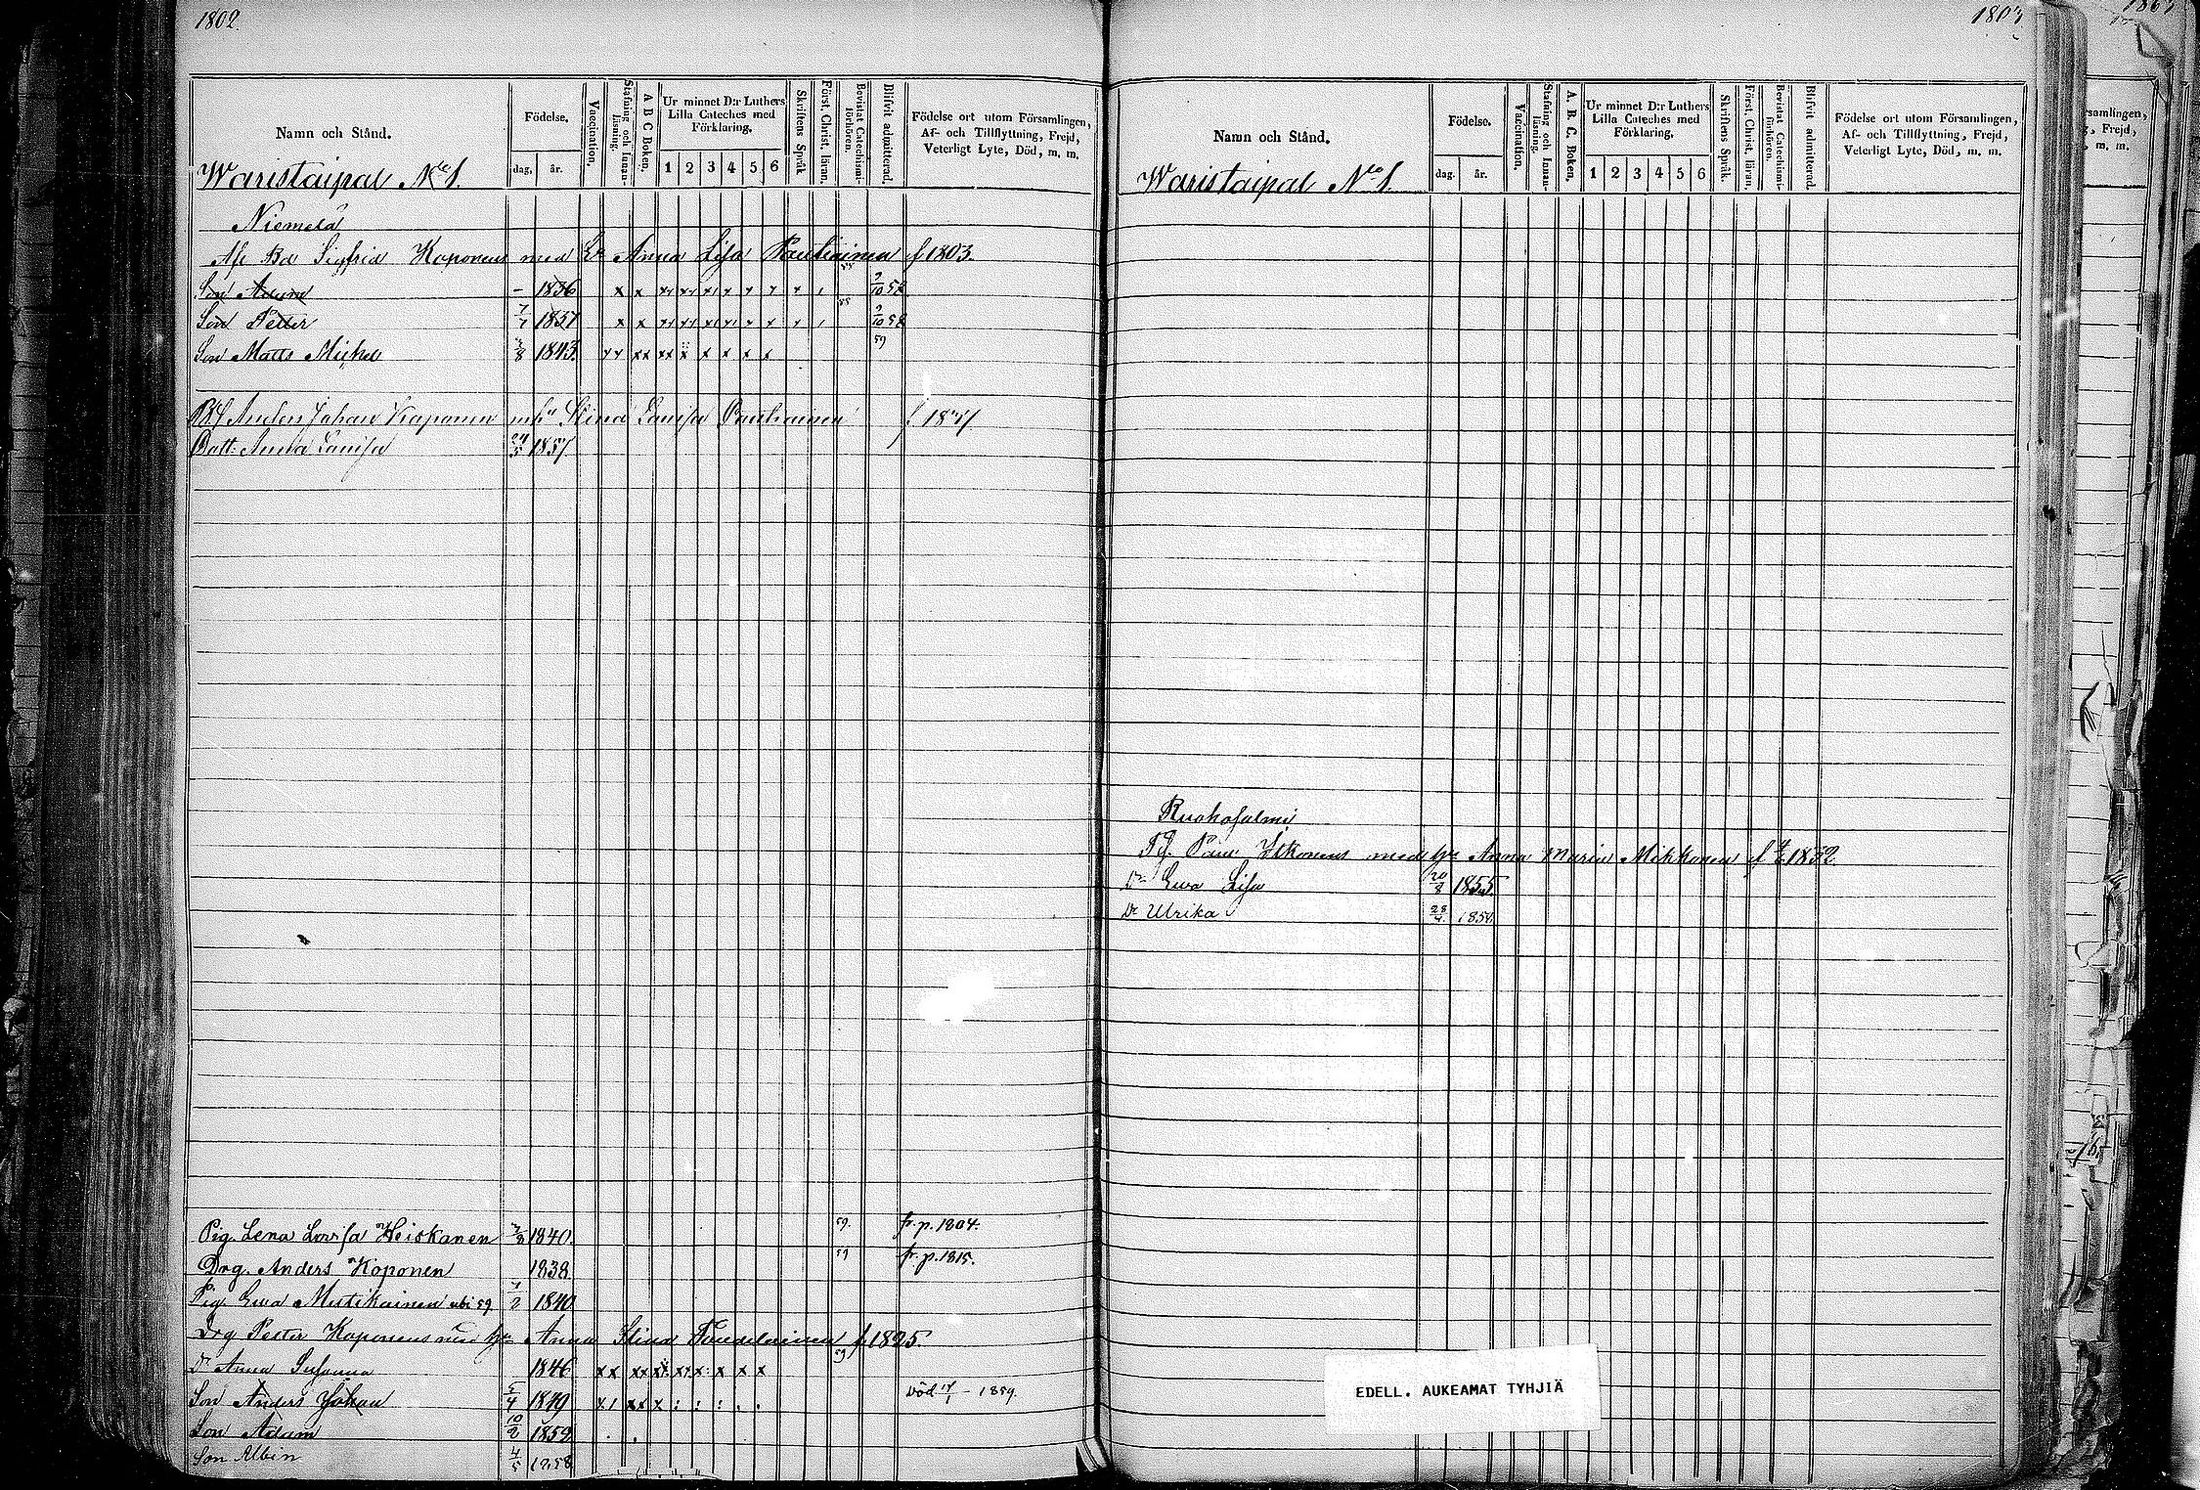 1802.
Namn och Stånd.
Födelse.
dag.
år.
Vaccination.
Stafning och Innan-läsning.
A B C Boken.
Ur minnet D:r Luthers Lilla Cateches med Förklaring.
1 2 3 4 5 6
Skriftens Språk
Först. Christ. läran.
Bevistat Catechismi-förhören.
Blifvit admitterad.
Födelse ort utom Församlingen,
Af- och Tillflyttning, Frejd,
Veterligt Lyte, Död, m. m.
Waristaipal No 1.
Niemelä
Af. Bd Sigfrid Koponens med E. Anna Lisa Pautiainen f 1803.
Son Adam – 1836 9/10 52
Son Petter 1837 9/10 52
Son Matts Michel 3/8 1843 59
Anders Johan Koponen Stina Lovisa Pautiainen
Dott. Anna Lovisa 24/5 1857
Pig. Lena Lovisa Heiskanen 3/8 1840. 59. fr. p. 1804.
Drg. Anders Koponen 1838 59 fr. p. 1815.
Pig. Ewa Mutikainen ubi 59 7/2 1840
Drg Petter Koponens med hu Anna Stina f 1825.
Dr Anna Susanna 1846 59
Son Anders Johan 5/4 1849 Död 17/1 – 1859.
Son Adam 10/2 1852
Son Albin 4/5 1858
1803
Namn och Stånd.
Födelse.
dag.
år.
Vaccination.
Stafning och Innan-läsning.
A. B. C. Boken.
Ur minnet D:r Luthers Lilla Cateches med Förklaring.
1 2 3 4 5 6
Skriftens Språk.
Först. Christ. läran.
Bevistat Catechismi-förhören.
Blifvit admitterad.
Födelse ort utom Församlingen,
Af- och Tillflyttning, Frejd,
Veterligt Lyte, Död, m. m.
Waristaipal No 1.
Ruohosalmi
Påul Itkonens med hu Anna Maria Mikkonen f 1832
Dr Ewa Lisa 20/8 1855
Dr Ulrika 28/4 1854
EDELL. AUKEAMAT TYHJIÄ